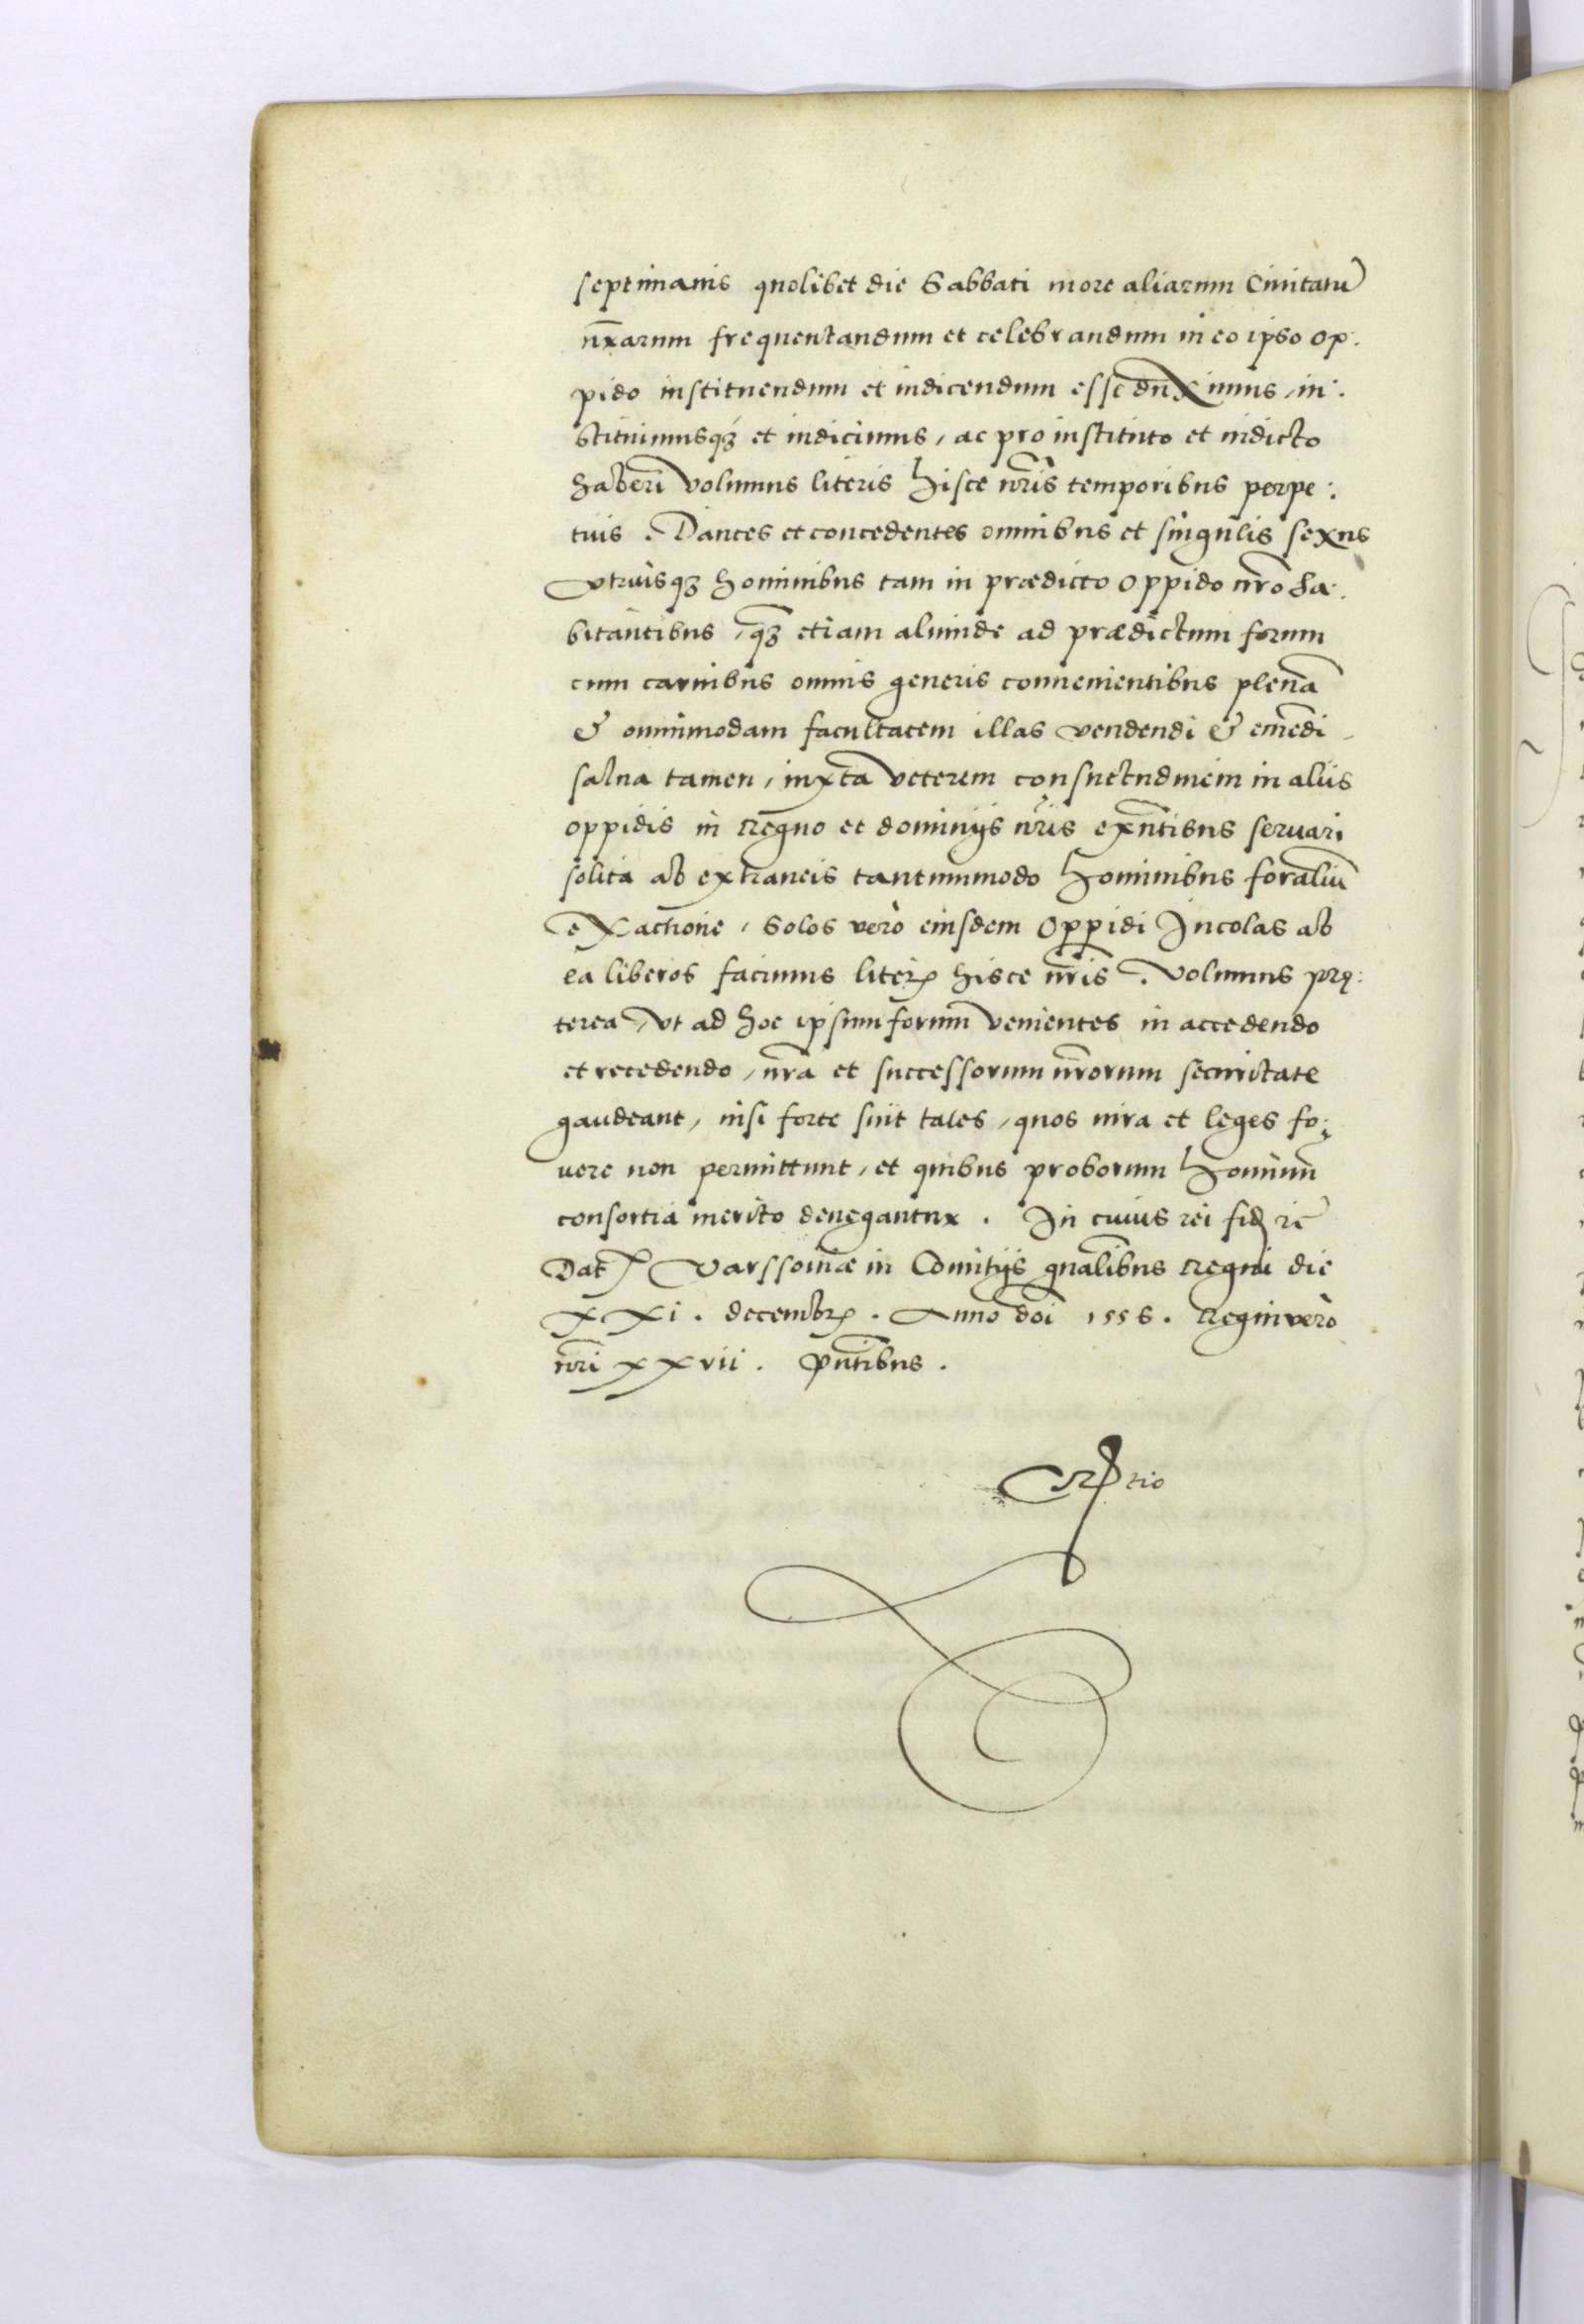 septimanis quolibet die Sabbati more aliarum Ciuitatū
nr̄arum frequentandum et celebrandum in eo ipso op:
pido instituendum et indicendum esse duximus, in:
stituimusqꝫ et indicimus, ac pro instituto et indicto
haberi volumus literis hisce nr̄is temporibus perpe:
tuis. Dantes et concedentes omnibus et singulis sexus
vtriusqꝫ hominibus tam in prædicto oppido nr̄o ha:
bitantibus, qꝫ etiam aliunde ad prædictum forum
cum carnibus omnis generis conuenientibus plenā
& omnimodam facultatem illas vendendi & emēdi
salua tamen, iuxta veterem consuetudinem in aliis
oppidis in Regno et dominijs nr̄is exn̄tibus seruari
solita ab extraneis tantummodo hominibus foraliū
exactione, Solos verò eiusdem Oppidi Incolas ab
ea liberos facimus literꝭ hisce nr̄is. Volumus prę:
terea, vt ad hoc ipsum forum venientes in accedendo
et recedendo, nr̄a et successorum nr̄orum securitate
gaudeant, nisi forte sint tales, quos iura et leges fo:
uere non permittunt, et quibus proborum hominū
consortia merito denegantur. In cuius rei fid rc̄
Datꝭ Varssouiæ in Comitijs gn̄alibus Regni die
XXi. decembrꝭ. Anno doī 1556. Regni verò
nr̄i xxvii. Pn̄tibus.